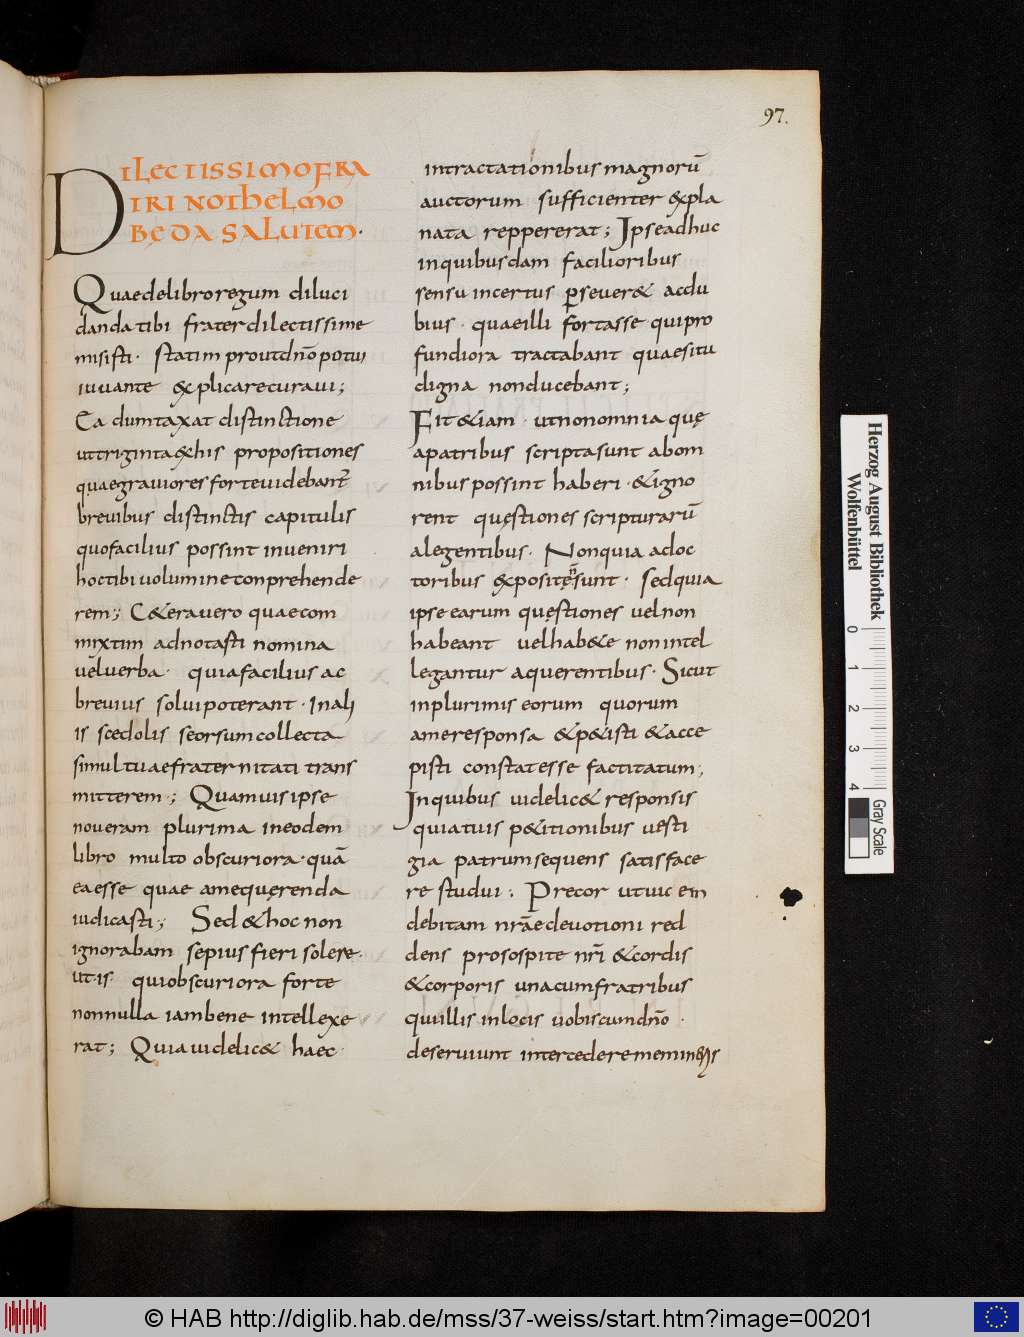 97.
DILECTISSIMO FRA
TRI NOTHELMO
BEDA SALUTEM.
Quae de libro regum diluci
danda tibi frater dilectissime
misisti. statim prout dnō potui
iuuante explicare curaui;
Ea dumtaxat distinctione
ut triginta ex his propositiones
quae grauiores forte uidebant̄
breuibus distinctis capitulis
quo facilius possint inueniri
hoc tibi uolumine conprehende
rem; Cetera uero quae com
mixtim adnotasti nomina
uel uerba. quia facilius ac
breuius solui poterant. In ali
is scedolis seorsum collecta
simul tuae fraternitati trans
mitterem; Quamuis ipse
noueram plurima in eodem
libro multo obscuriora. quā
ea esse quae a me quęrenda
iudicasti; Sed & hoc non
ignorabam sepius fieri solere.
ut is qui obscuriora forte
nonnulla iam bene intellexe
rat; Quia uidelic& haec
in tractationibus magnorū
auctorum sufficienter expla
nata reppererat; Ipse adhuc
in quibusdam facilioribus
sensu incertus perseuer& ac du
bius. quae illi fortasse qui pro
fundiora tractabant quaesitu
digna non ducebant;
Fit &iam. ut non omnia quę
a patribus scripta sunt ab om
nibus possint haberi. & igno
rent quęstiones scripturarū
a legentibus. Non quia a doc
toribus expositę n̄ sunt. sed quia
ipse earum quęstiones uel non
habeant uel habitę non intel
legantur a querentibus. Sicut
in plurimis eorum quorum
a me responsa & p&isti & acce
pisti constat esse factitatum;
In quibus uidelic& responsis
quia tuis p&itionibus uesti
gia patrum sequens satisface
re studui; Precor ut uicem
debitam nrāe deuotioni red
dens pro sospite nrī & cordis
& corporis una cum fratribus
qui illis in locis uobiscum dnō
deseruiunt intercedere memineris
Herzog August Bibliothek
Wolfenbüttel
0 1 2 3 4
Gray Scale
© HAB http://diglib.hab.de/mss/37-weiss/start.htm?image=00201